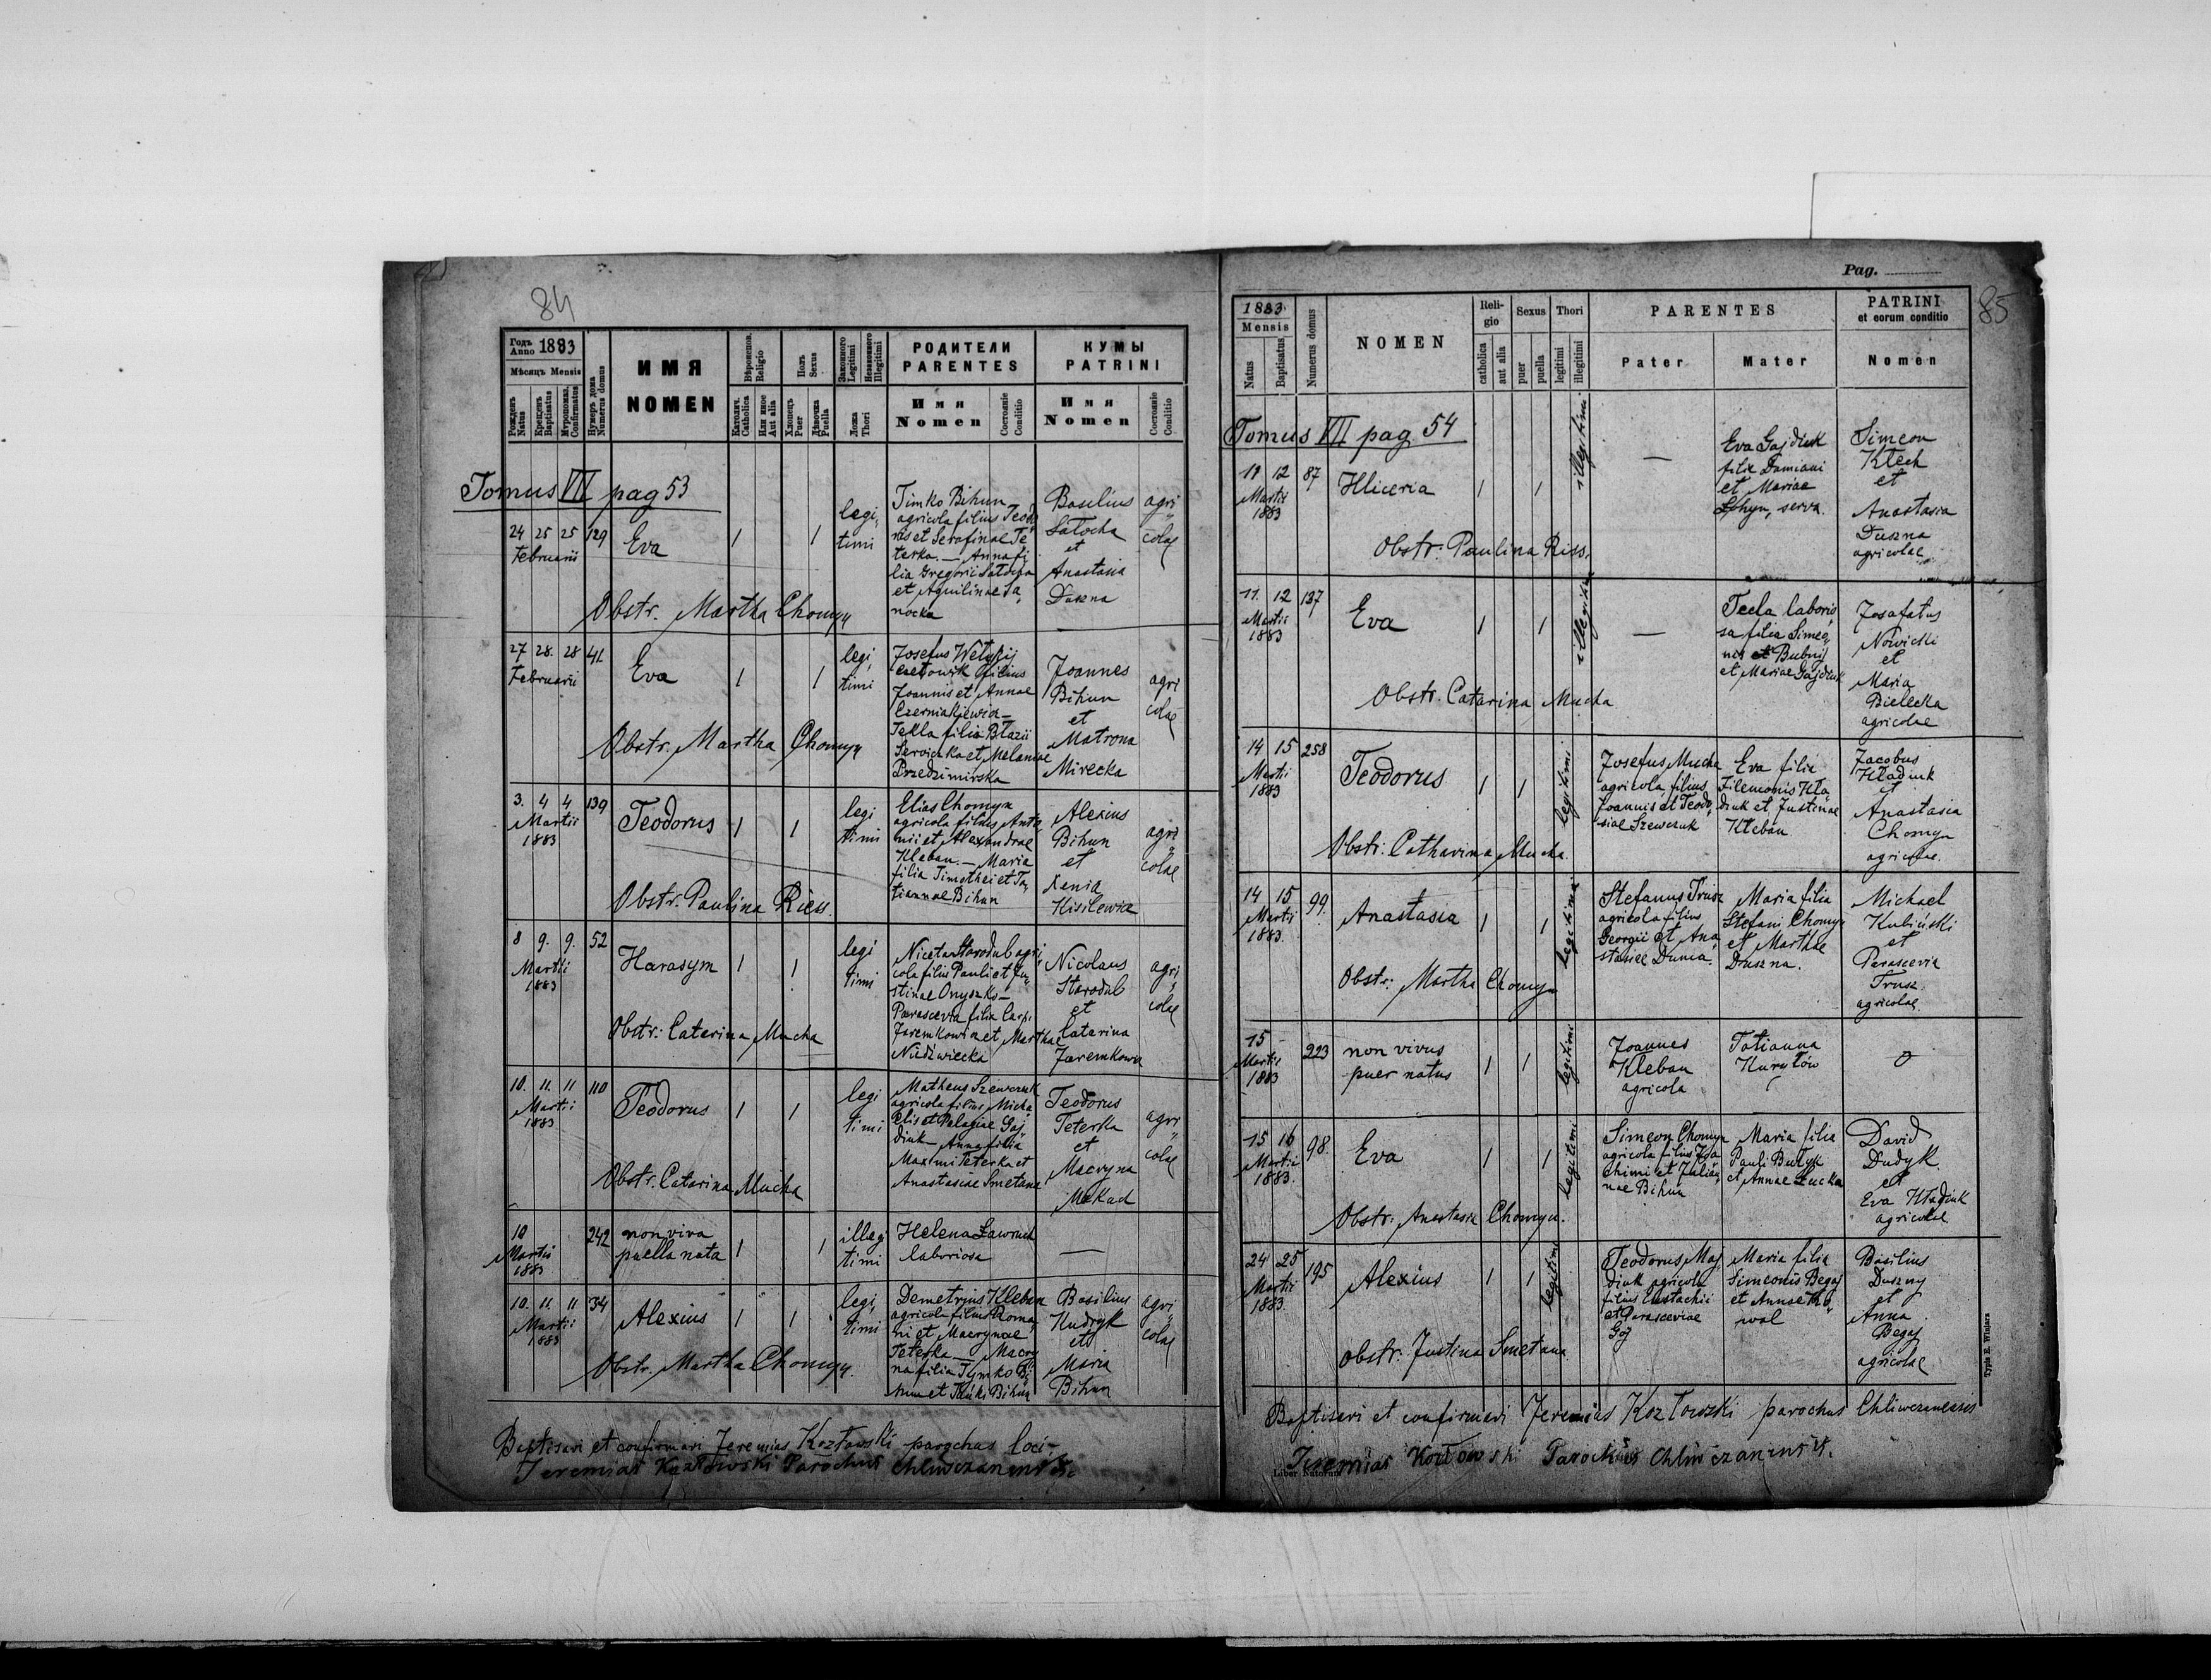 84
Годъ Anno 1883
Мѣсяцъ Mensis
Рожденъ Natus
Крещенъ Baptisatus
Мѵропомаз. Confirmatus
Нумеръ дома Numerus domus
ИМЯ
NOMEN
Вѣроиспов. Religio
Католич. Catholica
Или иное Aut alia
Полъ Sexus
Хлопецъ Puer
Дѣвочка Puella
Законного Legitimi
Незаконного Illegitimi
Ложа Thori
РОДИТЕЛИ
PARENTES
Имя
Nomen
Состояніе Conditio
КУМЫ
PATRINI
Имя
Nomen
Состояніе Conditio
Tomus VII pag 53
24 25 25 129
Februarii
Eva
legi,
timi
Timko Bihun
agricola filius Teodo
ris et Serafinae Te
terka. — Anna fi
lia Gregorii Satocha
et Aquilinae Sa
nocka
Basilius
Satocha
et
Anastasia
Duszna
agri
colae
Obstr. Martha Chomyn
27 28. 28 41
Februarii
Eva
legi,
timi
Josefus
filius
Joannis et Annae
Czerniakiewicz —
Tekla filia Błazii
et Melaniae
Przedzimirska
Joannes
Bihun
et
Matrona
Mirecka
agri
colae
Obstr. Martha Chomyn
3. 4 4 139
Martii
1883
Teodorus
legi
timi
Elias Chomyn
agricola filius Anto
nii et Alexandrae
Kleban. — Maria
filia Timothei et Ta,
tiannae Bihun
Alexius
Bihun
et
Xenia
Kisilewicz
agri
colae
Obstr. Paulina Riess.
8 9. 9. 52
Martii
1883
Harasym
legi
timi
Nicetas Starodub agri,
cola filius Pauli et Ju
stinae Onyszko —
Parascevia filia
Jaremkowicz et Marthae
Niedzwiecka
Nicolaus
Starodub
et
Catarina
Jaremkowicz
agri
colae
Obstr: Catarina Mucha
10. 11. 11 110
Martii
1883
Teodorus
legi
timi
Matheus Szewczuk
agricola filius Micha
elis et Pelagiae Gaj
diuk — Anna filia
Maximi Teterka et
Anastasiae Smetana
Teodorus
Teterka
et
Macryna
Makuch
agri
colae
Obstr. Catarina Mucha
10
Martii
1883
242
non viva
puella nata
illegi
timi
Helena
laboriosa
—
10. 11. 11 34
Martii
1883
Alexius
legi,
timi
Demetrius Kleban
agricola filius Roma
ni et Macrynae
Teterka — Macry
na filia Tymko Bi
hun et Bihun
Basilius
Kudryk
et
Maria
Bihun
agri
colae
Obstr. Martha Chomyn.
Baptisavi et confirmavi Jeremias Kozłowski parochus loci.
Jeremias Kozłowski Parochus Chliwczanensis.
Pag.
85
1883
Mensis
Natus
Baptisatus
Numerus domus
NOMEN
Religio
catholica
aut alia
Sexus
puer
puella
Thori
legitimi
illegitimi
PARENTES
Pater
Mater
PATRINI
et eorum conditio
Nomen
Tomus VII pag. 54
11 12 87
Martii
1883
Hliceria
illegitimi
—
Eva Gajdiuk
filia Damiani
et Mariae
serva.
Simeon
Klech
et
Anastasia
Duszna
agricolae
Obstr: Paulina Riss.
11. 12 137
Martii
1883
Eva
illegitimi
—
Tecla laborio
sa filia Simeo
nis et Bubnij
et Mariae Gajdiuk
Josafatus
Nowicki
et
Maria
Bielecka
agricolae
Obstr. Catarina Mucha
14 15 258
Martii
1883
Teodorus
legitimi
Josefus Mucha
agricola filius
Joannis et Teodo,
siae Szewczuk
Eva filia
Filemonis Kła
diuk et Justinae
Kleban
Jacobus
Kładiuk
et
Anastasia
Chomyn
agricolae.
Obstr: Catharina Mucha.
14 15 99.
Martii
1883.
Anastasia
legitimi
Stefanus Trusz
agricola filius
Georgii et Ana,
stasiee
Maria filia
Stefani Chomyn
et Marthae
Duszna.
Michael
Kubiński
et
Parascevia
Trusz.
agricolae
Obstr: Martha Chomyn
15 -
Martii
1883
223
non vivus
puer natus
legitimi
Joannes
Kleban
agricola
Tatianna
Kuryłów
15 16 98.
Martii
1883.
Eva
legitimi
Simeon Chomyn
agricola filius Joa
chimi et Julian,
nae Bihun
Maria filia
Pauli Budyk
et Annae Łucka
David
Dudyk
et
Eva Kładiuk
agricolae
Obstr. Anastasia Chomyn.
24 25 195
Martii
1883.
Alexius
legitimi
Teodorus Maj
diuk agricola
filius Eustachii
et Parasceviae
Goj
Maria filia
Simeonis Begaj
et Annae
Basilius
Duszny
et
Anna
Begaj
agricolae
Obstr: Justina Smetana
Baptisavi et confirmavi Jeremias Kozłowski parochus Chliwczanensis
Jeremias Kozłowski Parochus Chliwczanensis.
Liber Natorum
Typis E. Winiarz